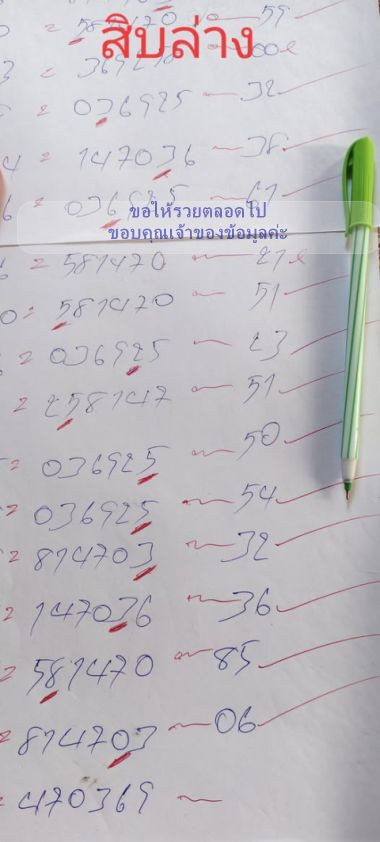 สิบล่าง
= 581470 ~ 59
= 369258 ~ 00
= 036925 ~ 32
4 = 147036 ~ 38
6 = 036925 ~ 61
ขอให้รวยตลอดไป
ขอบคุณเจ้าของข้อมูลค่ะ
= 581470 ~ 21
0 = 581470 ~ 51
= 036925 ~ 23
= 258147 ~ 51
= 036925 ~ 50
= 036925 ~ 54
= 814703 ~ 32
= 147036 ~ 36
= 581470 ~ 85
= 814703 ~ 06
= 470369 ~